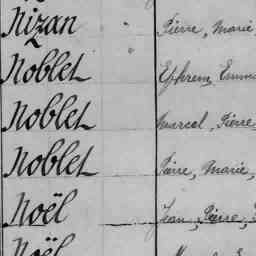 Nizan " Pierre, Marie
Noblet Ephrem, Emma
Noblet Marcel, Pierre
Noblet Pierre, Marie,
Noël Jean, Pierre,
Noël